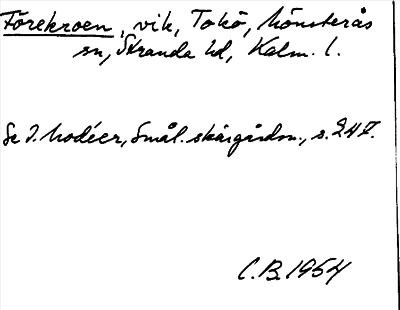 Förekroen, vik, Tokö, Mönsterås
sn, Stranda hd, Kalm. l.
Se I. Modéer, Smål. skärgårdsn., s. 247.
C.B. 1954